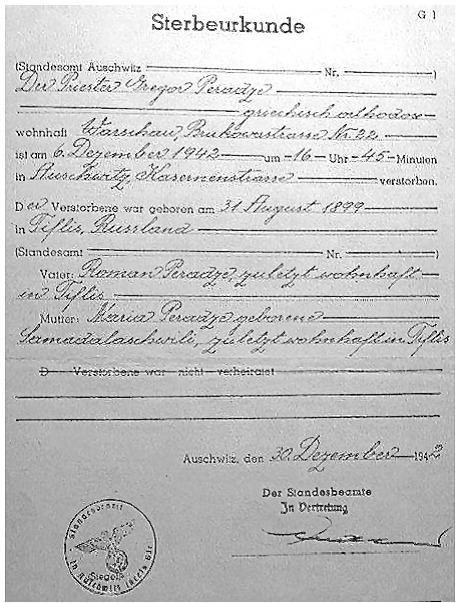 G 1
Sterbeurkunde
(Standesamt Auschwitz Nr. )
Der Priester Gregor Peradze
griechisch orthodox
wohnhaft Warschau, Brukowastrasse Nr. 22
ist am 6. Dezember 1942 um 16 Uhr 45 Minuten
in Auschwitz, Kasernenstrasse verstorben.
Der Verstorbene war geboren am 31. August 1899
in Tiflis, Russland
(Standesamt Nr. )
Vater: Roman Peradze, zuletzt wohnhaft
in Tiflis
Mutter: Maria Peradze geborene
Samadalaschwili, zuletzt wohnhaft in Tiflis
D Verstorbene war nicht verheiratet
Auschwitz, den 30. Dezember 1942
Der Standesbeamte
In Vertretung
Siegels